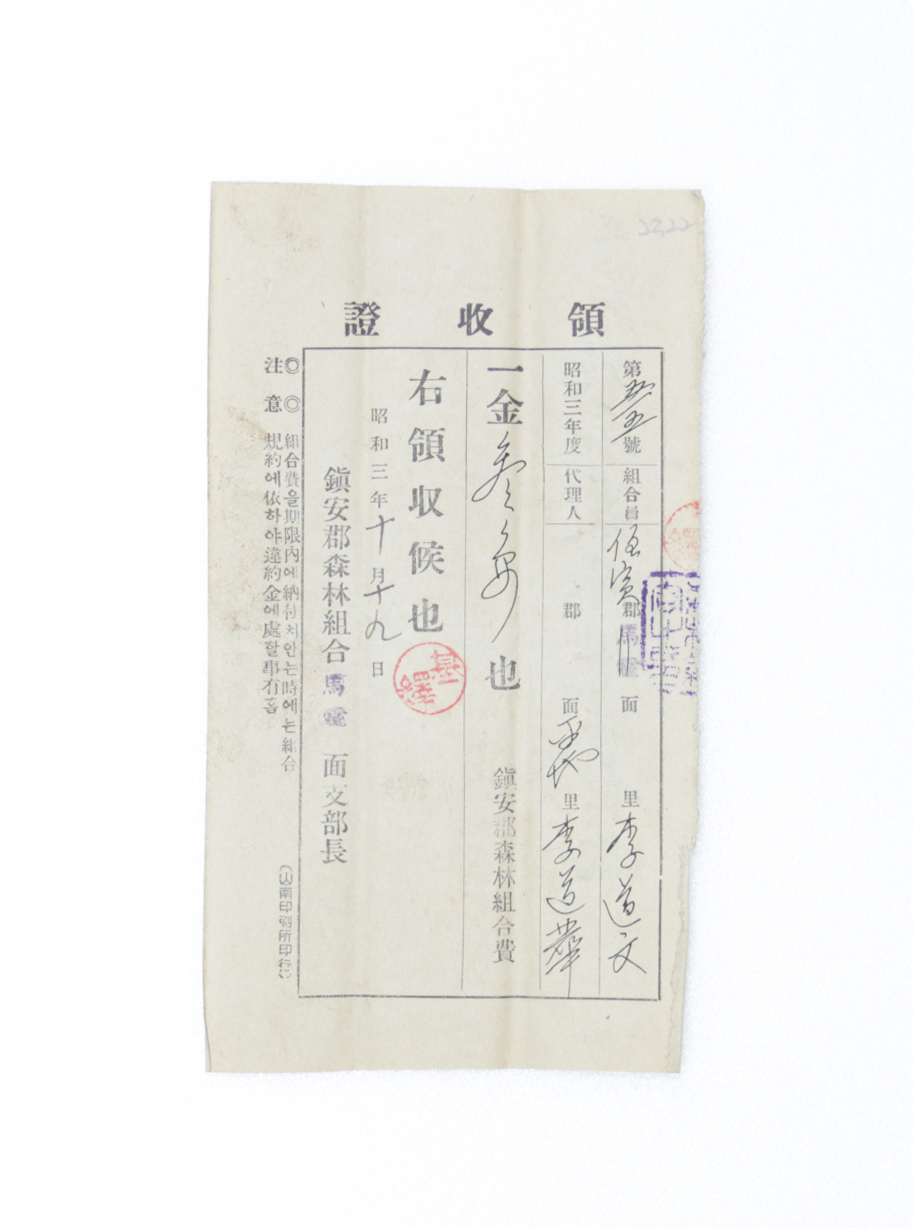 2322
領收證
第 號 組合員 任實郡馬靈面 里 李道文
昭和三年度 代理人 郡 面 里 李道華
一金參 也 鎭安郡森林組合費
右領收候也
昭和三年十月十九日
鎭安郡森林組合馬靈面支部長
◎注意
◎組合費을期限內에納付치안는時에는組合
規約에依하야違約金에處할事有홈
(山南印刷所印行)